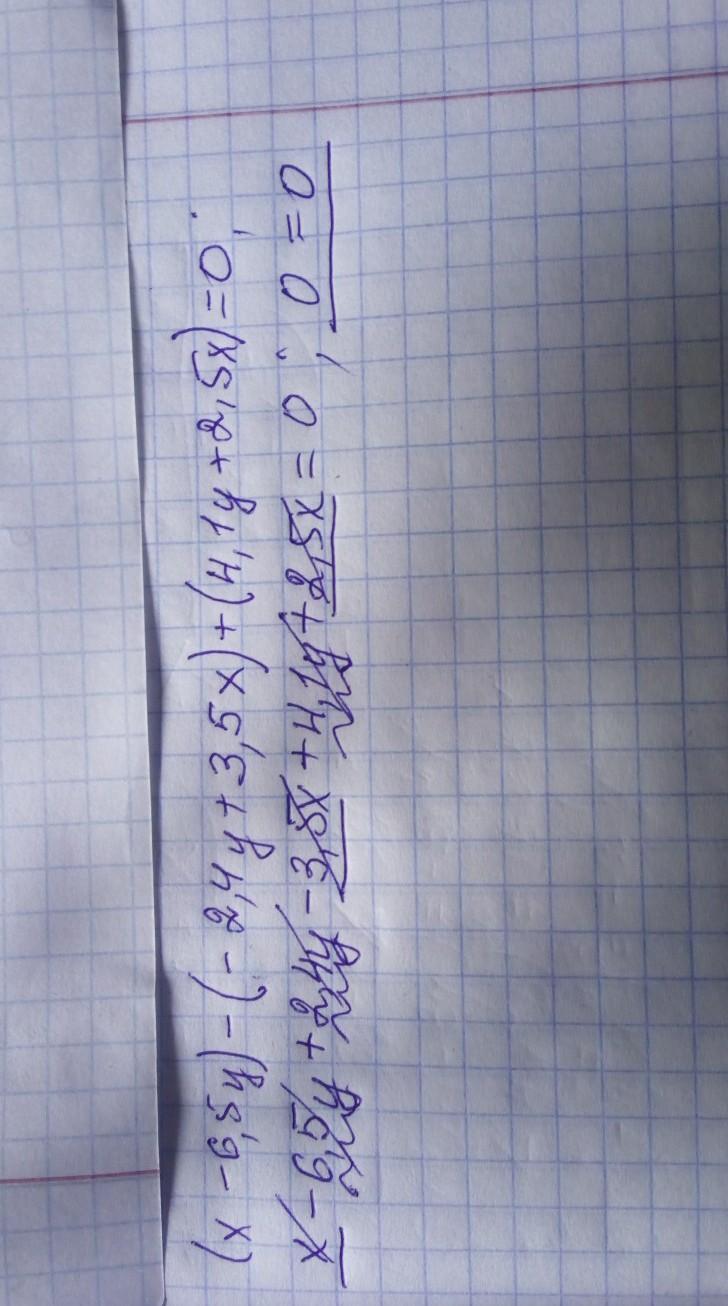 (x - 6,5y) - (- 2,4y + 3,5x) + (4,1y + 2,5x) = 0;
x - 6,5y + 2,4y - 3,5x + 4,1y + 2,5x = 0; 0 = 0